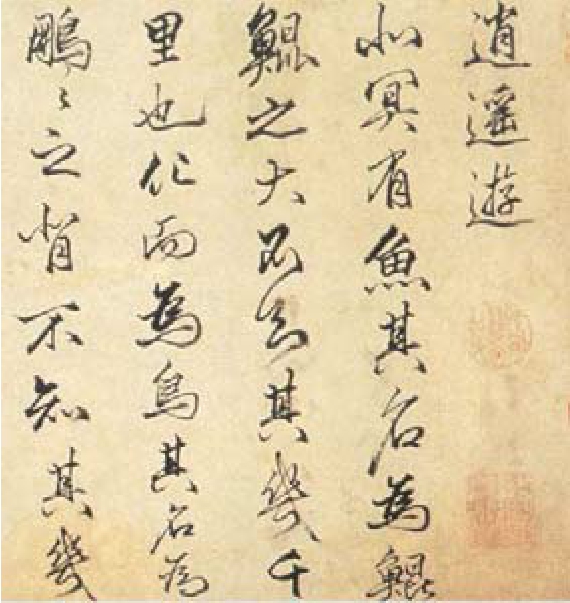 逍遥遊
北冥有魚其名為鯤
鯤之大不知其幾千
里也化而為鳥其名為
鵬〻之背不知其幾